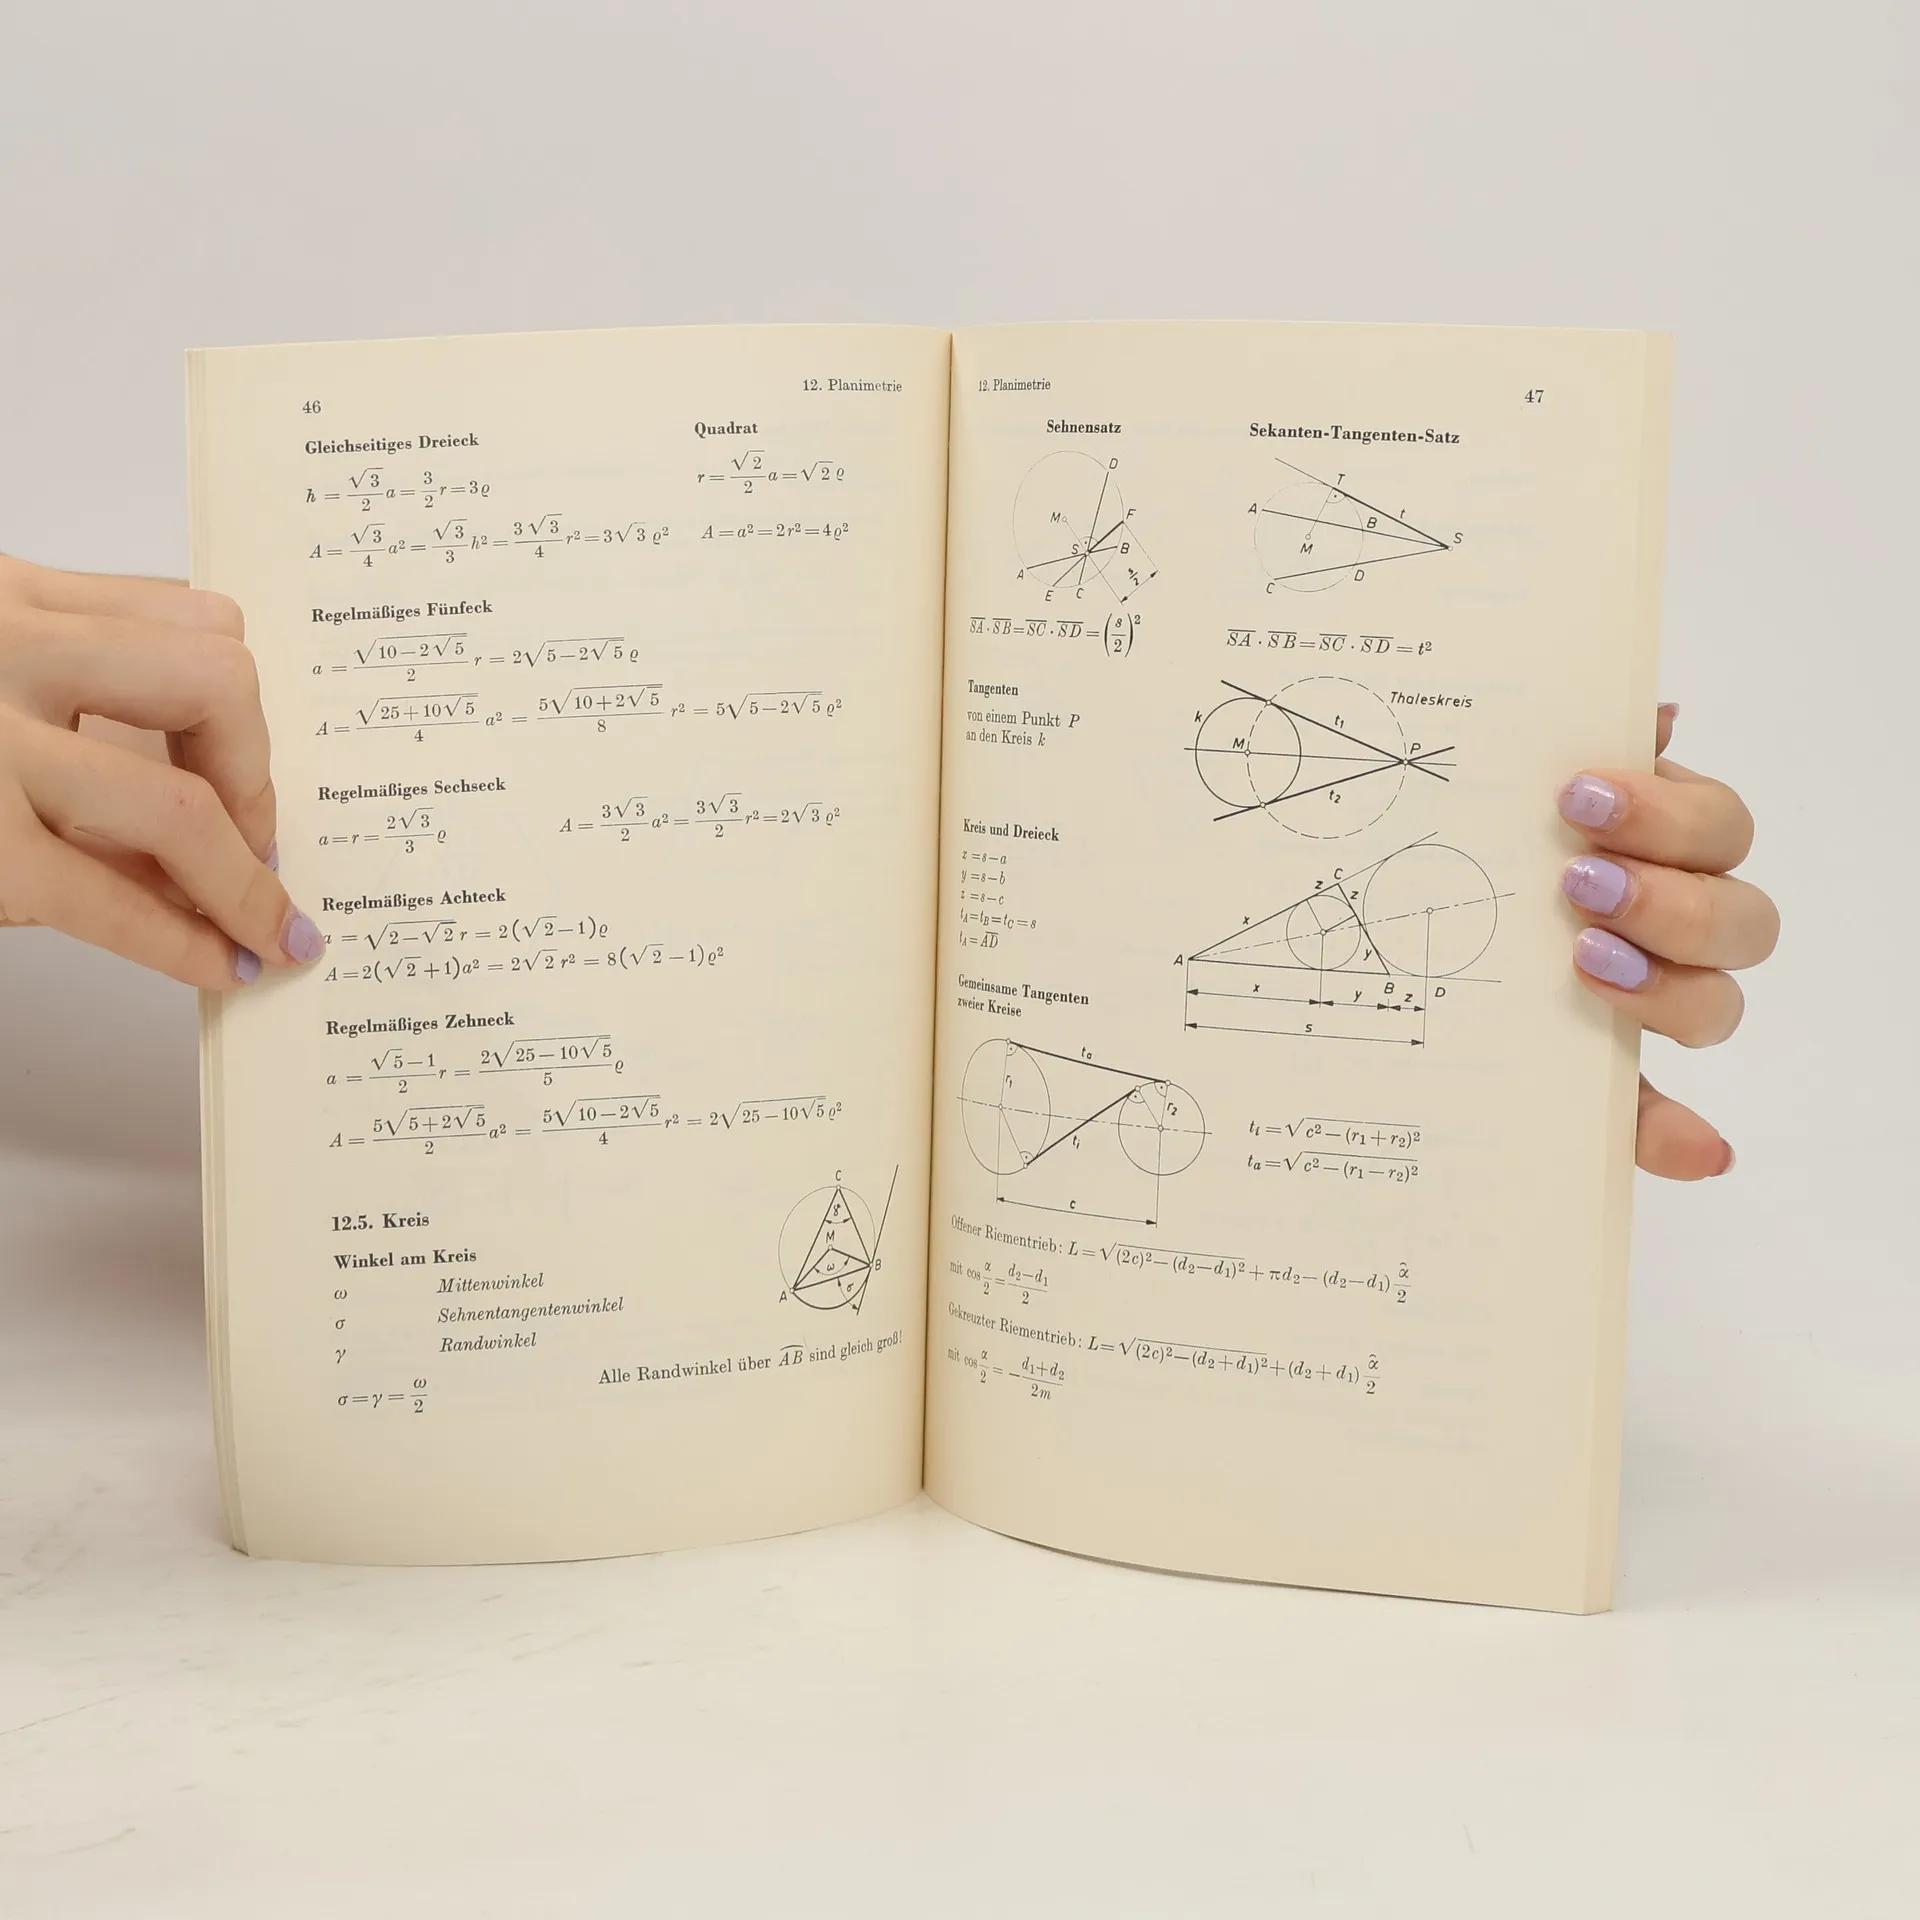 46
12. Planimetrie
Gleichseitiges Dreieck
h = √3/2 a = 3/2 r = 3ϱ
A = √3/4 a² = √3/3 h² = 3√3/4 r² = 3√3 ϱ²
Quadrat
r = √2/2 a = √2 ϱ
A = a² = 2r² = 4ϱ²
Regelmäßiges Fünfeck
a = √(10−2√5)/2 r = 2√(5−2√5) ϱ
A = √(25+10√5)/4 a² = 5√(10+2√5)/8 r² = 5√(5−2√5) ϱ²
Regelmäßiges Sechseck
a = r = 2√3/3 ϱ
A = 3√3/2 a² = 3√3/2 r² = 2√3 ϱ²
Regelmäßiges Achteck
a = √(2−√2) r = 2(√2−1)ϱ
A = 2(√2+1)a² = 2√2 r² = 8(√2−1)ϱ²
Regelmäßiges Zehneck
a = (√5−1)/2 r = 2√(25−10√5)/5 ϱ
A = 5√(5+2√5)/2 a² = 5√(10−2√5)/4 r² = 2√(25−10√5) ϱ²
12.5. Kreis
Winkel am Kreis
ω Mittenwinkel
σ Sehnentangentenwinkel
γ Randwinkel
σ = γ = ω/2
C
γ
M
ω
B
A
σ
Alle Randwinkel über AB sind gleich groß!
12. Planimetrie
47
Sehnensatz
D
M
F
S
B
A
E
C
s/2
SA · SB = SC · SD = (s/2)²
Sekanten-Tangenten-Satz
T
A
B
t
S
M
C
D
SA · SB = SC · SD = t²
Tangenten
von einem Punkt P
an den Kreis k
Thaleskreis
k
t₁
M
P
t₂
Kreis und Dreieck
x = s−a
y = s−b
z = s−c
t_A = t_B = t_C = s
t_A = AD
C
z
z
x
A
y
B
D
x
y
z
s
Gemeinsame Tangenten
zweier Kreise
t_a
r₁
r₂
t_i
c
t_i = √(c²−(r₁+r₂)²)
t_a = √(c²−(r₁−r₂)²)
Offener Riementrieb: L = √((2c)²−(d₂−d₁)²) + πd₂ − (d₂−d₁) α̂/2
mit cos α/2 = (d₂−d₁)/2
Gekreuzter Riementrieb: L = √((2c)²−(d₂+d₁)²) + (d₂+d₁) α̂/2
mit cos α/2 = −(d₁+d₂)/2m